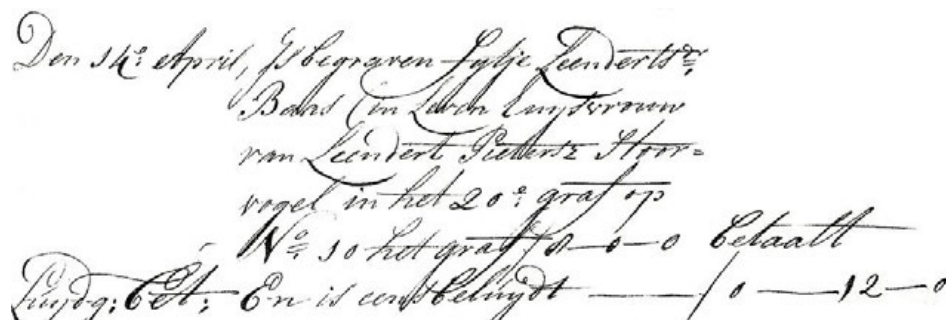 Den 14e April, Is begraven Lijtje Leendertsdr
Baas in Leven huijsvrouw
van Leendert Pieterse Stoor=
vogel in het 20e graf op
No 10 het graf f 8—0—0 betaalt
Luijdg: bet: En is eens beluijdt — f 0—12—0